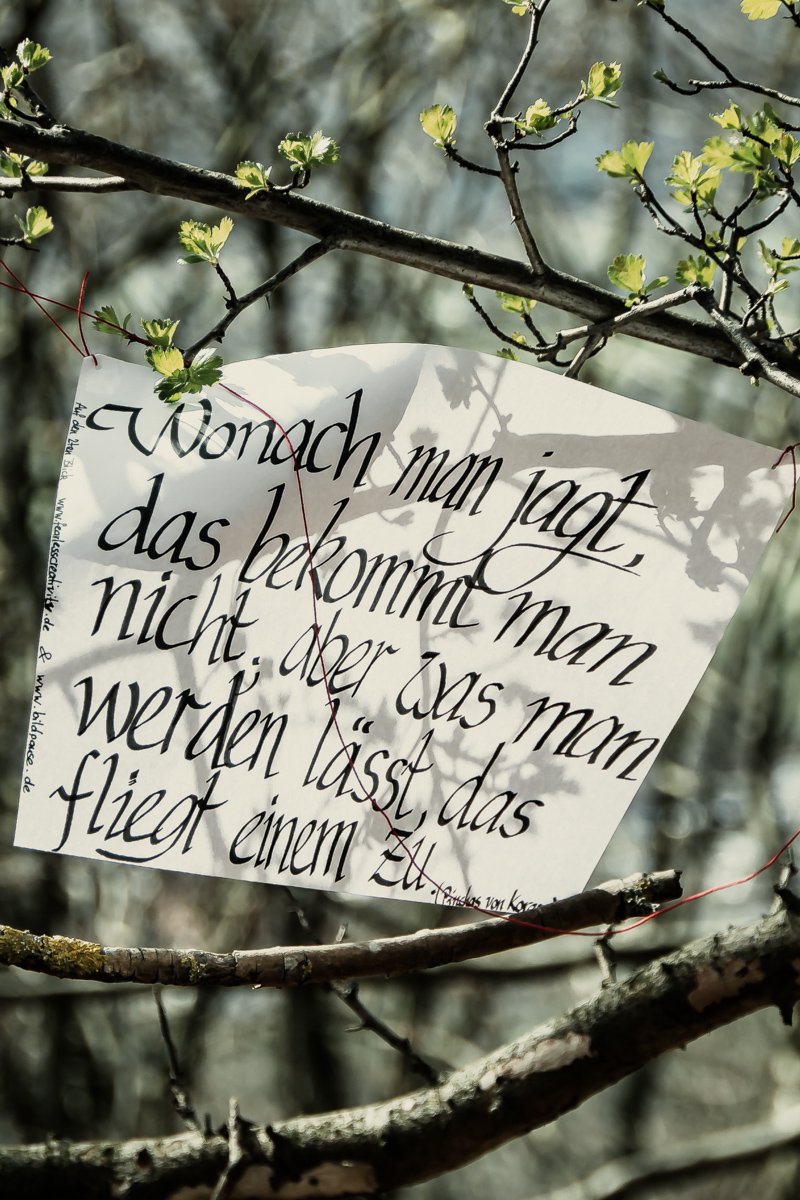 Wonach man jagt,
das bekommt man
nicht, aber was man
werden lässt, das
fliegt einem zu.
(Pinchas von
Auf den 2ten Blick www.fearlesscreativity.de & www.bildpause.de